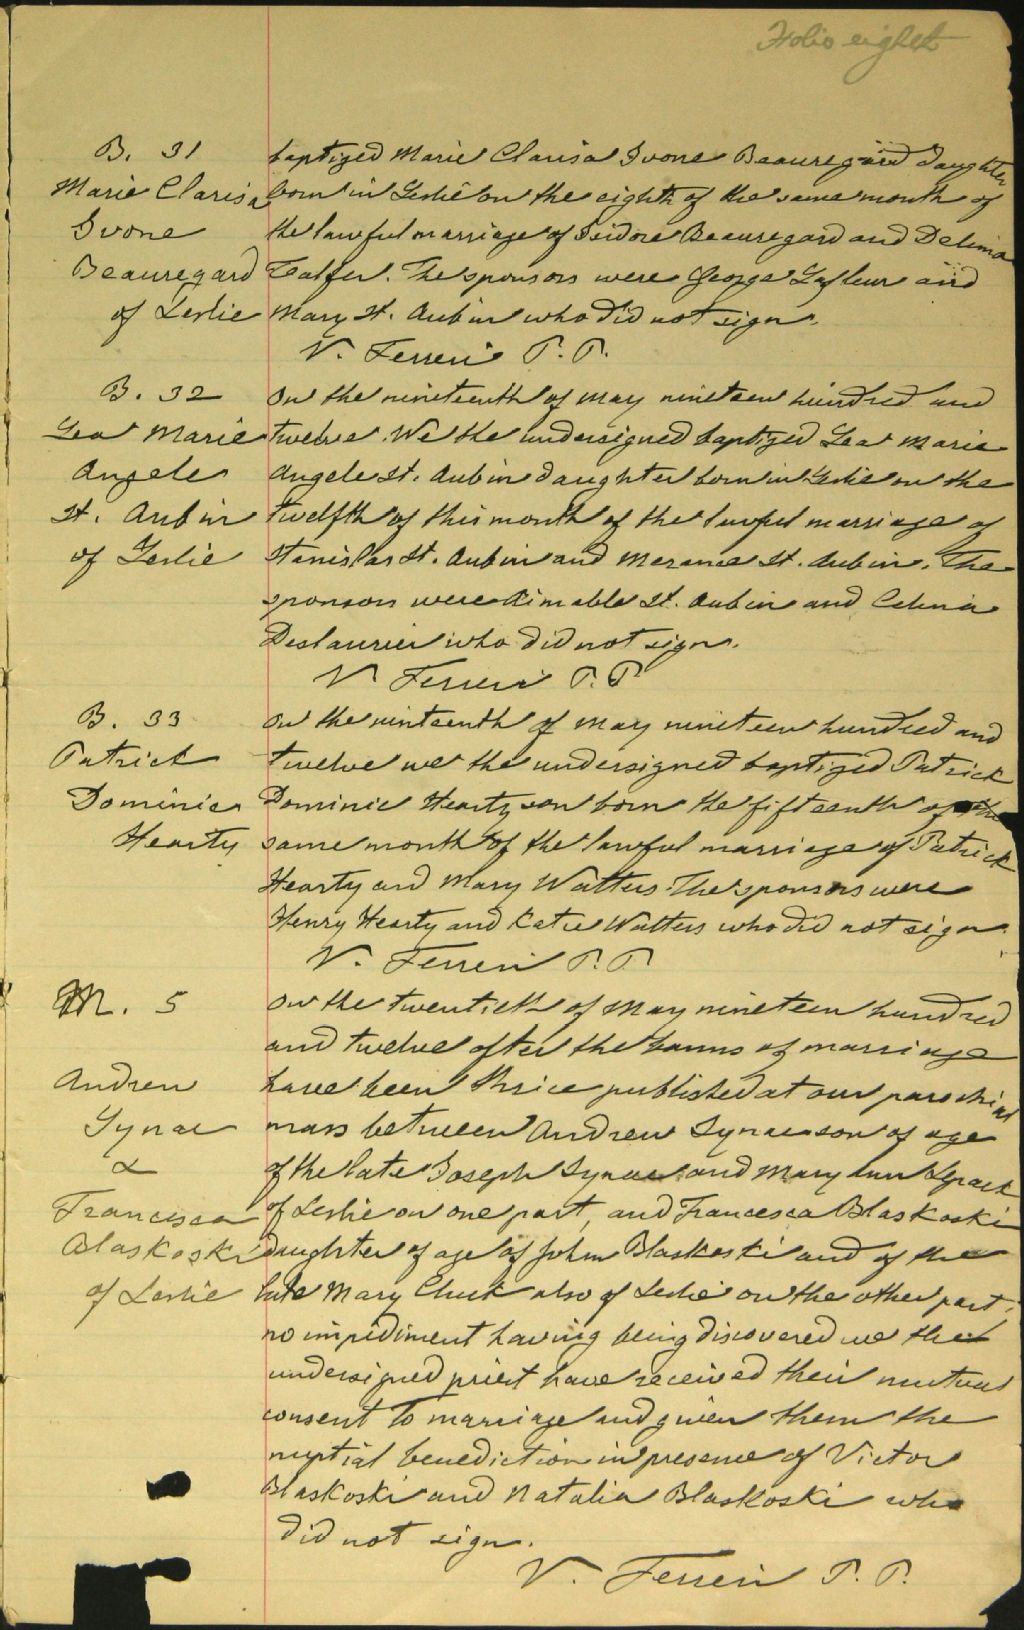 Folio eight
B. 31
Marie Clarisa
Ivone
Beauregard
of Leslie
baptized Marie Clarisa Ivone Beauregard daughter
born in Leslie on the eighth of the same month of
the lawful marriage of Isidore Beauregard and Delima
The sponsors were George Lafleur and
Mary St. Aubin who did not sign.
V. Ferreri P. P.
B. 32
Lea Marie
Angele
St. Aubin
of Leslie
On the nineteenth of May nineteen hundred and
twelve We the undersigned baptized Lea Marie
Angele St. Aubin daughter born in Leslie on the
twelfth of this month of the lawful marriage of
Stanislas St. Aubin and Merance St. Aubin. The
sponsors were Aimable St. Aubin and Celina
Deslaurier who did not sign.
V Ferreri P. P
B. 33
Patrick
Dominic
Hearty
On the ninteenth of May nineteen hundred and
twelve we the undersigned baptized Patrick
Dominic Hearty son born the fifteenth of the
same month of the lawful marriage of Patrick
Hearty and Mary Watters. The sponsors were
Henry Hearty and Katie Watters who did not sign.
V. Ferreri P. P.
M. 5
Andrew
Synac
&
Francesca
Blaskoski
of Leslie
On the twentieth of May nineteen hundred
and twelve after the banns of marriage
have been thrice published at our parochial
mass between Andrew Synac son of age
of the late Joseph Synac and Mary Ann
of Leslie on one part, and Francesca Blaskoski
daughter of age of John Blaskoski and of the
late Mary Chuk also of Leslie on the other part,
no impidiment having being discovered we the
undersigned priest have received their mutual
consent to marriage and given them the
nuptial benediction in presence of Victor
Blaskoski and Natalia Blaskoski who
did not sign.
V. Ferreri P. P.